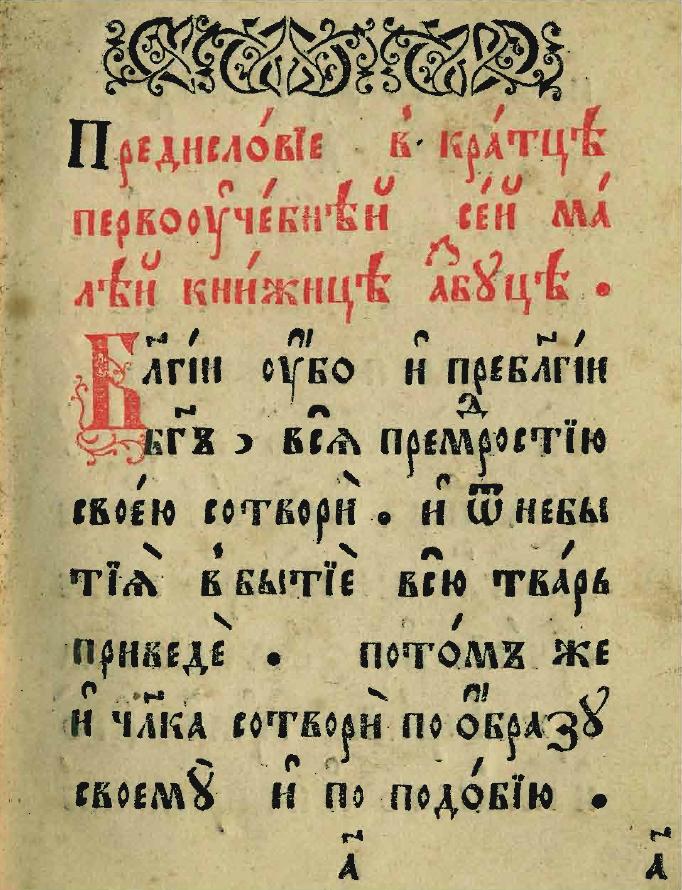 Предисло́вїе в̾ кра́тцѣ
первооу҆че́бнѣй се́й ма́
лѣй кни́жицѣ а҆́збꙋцѣ .
Бл҃гі́й оу҆́бо и҆ пребл҃гі́й
бг҃ъ , всѧ҆ премⷣростїю
свое́ю сотворѝ . и҆ ѿ небы
тїѧ̀ в̾ бытїѐ всю҆ тва́рь
приведѐ . пото́мъ же
и҆ чл҃ка сотворѝ по ѻ҆́бразꙋ
своемꙋ̀ и҆ по подо́бїю .
а҃ а҃